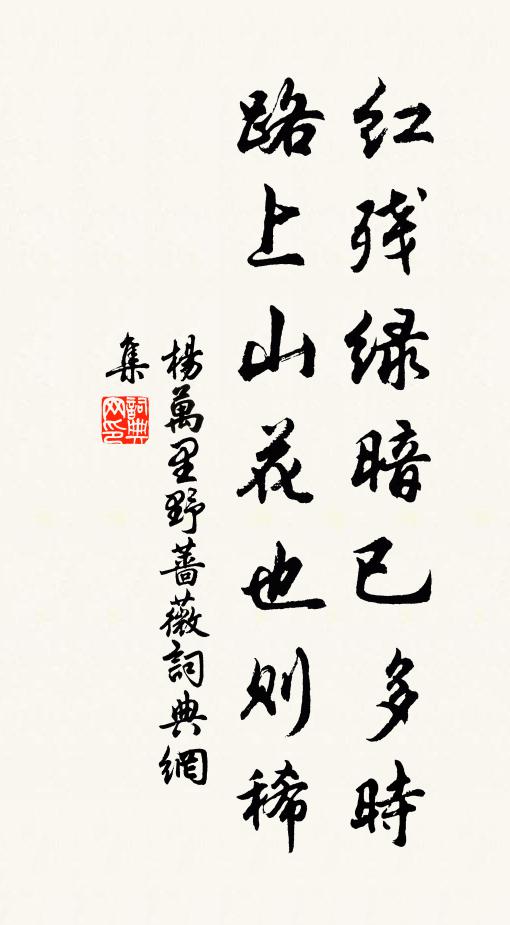 红残绿暗已多时
路上山花也则稀
杨萬里野蔷薇詞典網
集
詞典网印